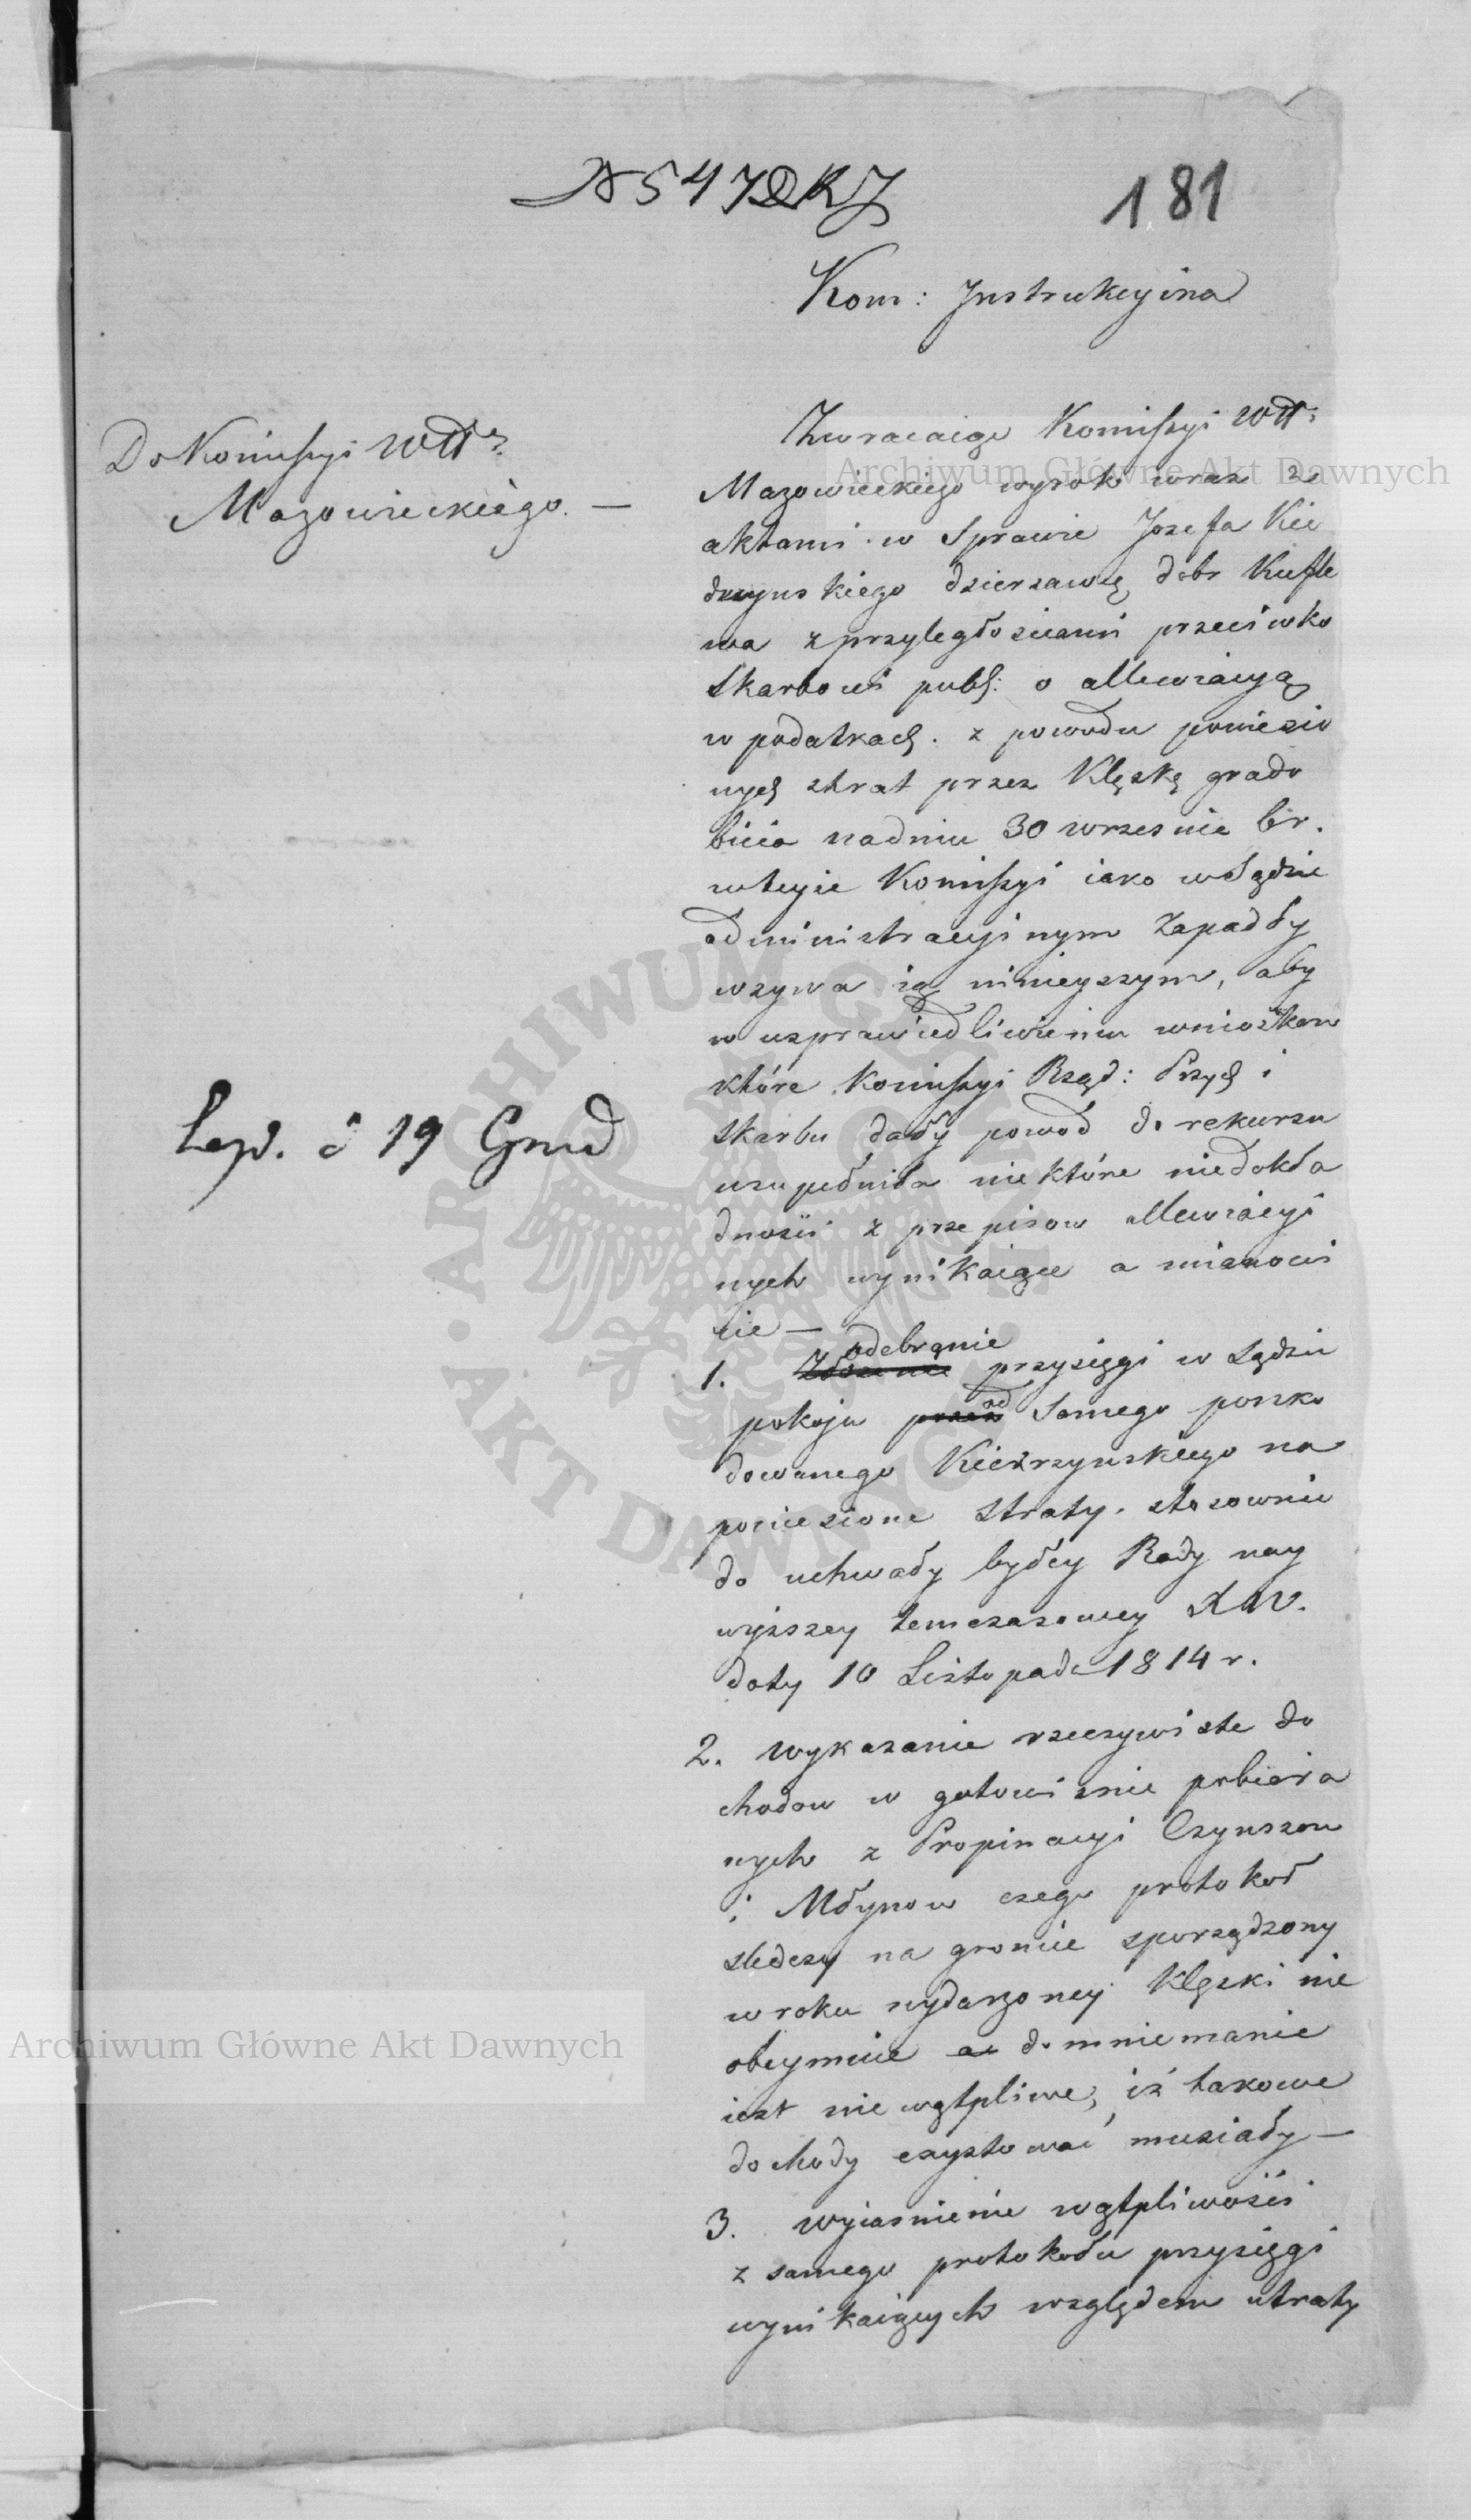 N 547 DKJ
181
Kom: Instrukcyina
Do Komissyi Wttwa
Mazowieckiego. —
Zwracaiąc Komissyi Wttwa
Mazowieckiego wyrok wraz z
aktami w Sprawie Jozefa Kie
drzynskiego dzierzawcę dobr Kufle
wa z przyległosciami przeciwko
Skarbowi publ: o allewiacyą
w podatkach. z powodu poniesio
nych strat przez Klęskę grado
bicia na dniu 30 wrzesnia br.
w teyże Komissyi iako w Sądzie
administracyinym zapadły
wzywa ią ninieyszym, aby
w usprawiedliwieniu wnioskow
które Komissyi Rząd: Przych i
Skarbu dały powod do rekursu
uzupełniła niektóre niedokła
dności z przepisow allewiacyi
nych wynikaiące a mianowi
cie —
Exp. d 19 Grud
odebranie
1. Złożenie przysięgi w Sądzie
od
pokoju przez Samego poszko
dowanego Kiedrzynskiego na
poniesione Straty. stosownie
do uchwały byłey Rady nay
wyższey temczasowey XW.
daty 10 Listopada 1814 r.
2. Wykazanie rzeczywiste do
chodow w gotowiznie pobiera
nych z Propinacyi Czynszow
i Młynow czego protokoł
sledczy na groncie sporządzony
w roku wydarzoney Klęski nie
obeymuie a domniemanie
iest nie wątpliwe, iż takowe
dochody exystować musiały —
3. Wyiasnienie wątpliwości
z samego protokołu przysięgi
wynikaiących względem utraty
Archiwum Główne Akt Dawnych
Archiwum Główne Akt Dawnych
ARCHIWUM GŁÓWNE AKT DAWNYCH